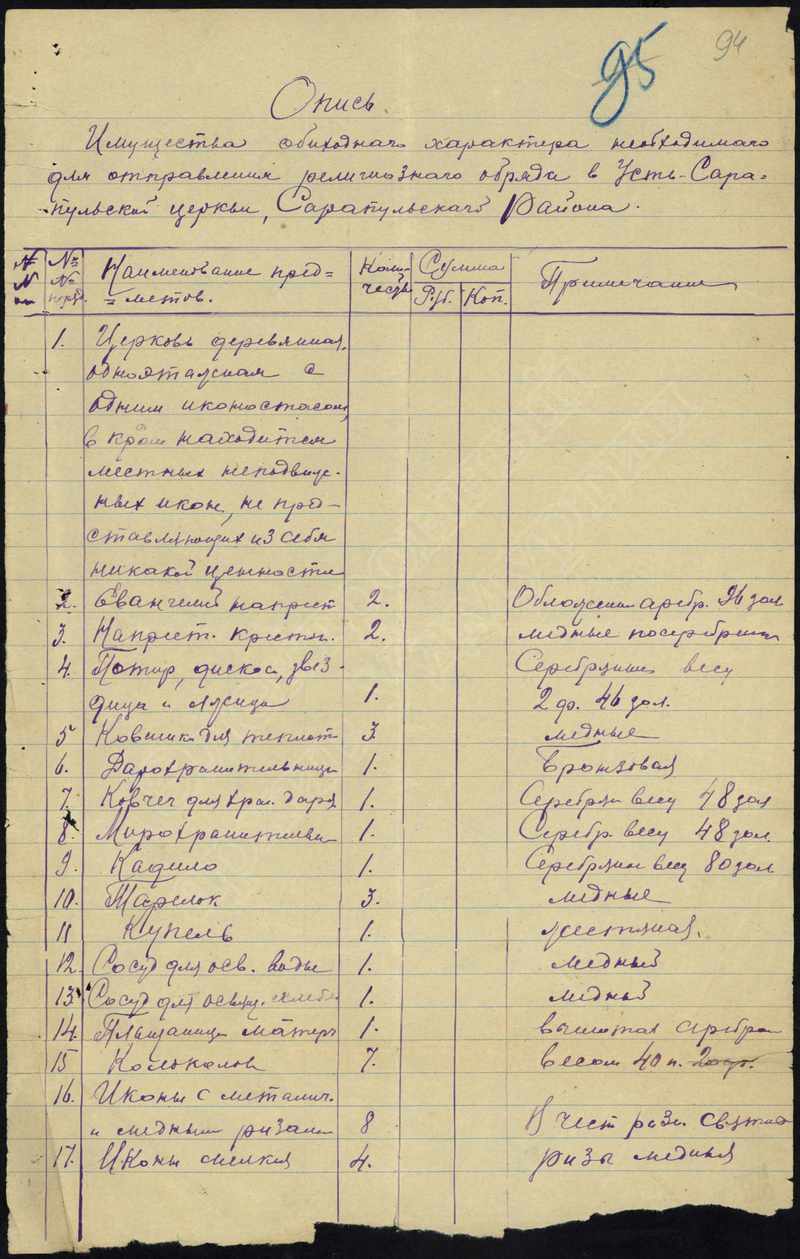 95 94
Опись.
Имущества обиходнаго характера необходимаго
для отправления религиознаго обряда в Усть-Сара=
пульской церкви, Сарапульскаго Района.
№ № Наименование пред= Коли- Сумма Примечание
№ № поряд. =метов. чество Руб. Коп.
1. Церковь деревянная,
одноэтажная с
одним иконостасом,
в кром находится
местных неподвиж-
ных икон, не пред-
ставляющих из себя
никакой ценности
2. Евангелий напрест 2. Обложении серебр. 96 зол
3. Напрест. кресты. 2. медные посеребрены
4. Потир, дискос, звез- Серебряные весу
дица и лжица 1. 2 ф. 46 зол.
5 Ковшика для теплот 3. медные
6. Дарохранительница 1. Бронзовая
7. Ковчег для хран. даров 1. Серебрян весу 48 зол
8. Мирохранительн 1. Серебр. весу 48 зол.
9. Кадило 1. Серебрян весу 80 зол
10. Тарелок 3. медные
11 Купель 1. жестяная.
12. Сосуд для осв. воды 1. медный
13 Сосуд для освящ. хлеба 1. медный
14. Плащаница матер 1. вышитая серебром
15 Колоколов 7. весом 40 п.
16. Иконы с металич.
и медными ризами 8
17. Иконы мелкия 4. ризы медныя